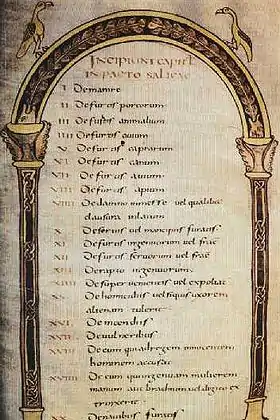 INCIPIUNT CAPITL
IN PACTO SALICAE
I De mannire
II De furtis porcorum
III De furtis animalium
IIII De furtis ovium
V De furtis caprarum
VI De furtis canum
VII De furtis avium
VIII De furtis apium
VIIII De damno in messe vel qualibet
clausura inlatum
X De servis vel mancipiis furatis
XI De furtis ingenuorum vel frac
XII De furtis servorum vel frac
XIII De rapto ingenuorum
XIIII De super venientis vel expoliat
XV De homicidiis vel si quis uxorem
alienam tulerit
XVI De incendiis
XVII De vulneribus
XVIII De eum qui ad regem innocentem
hominem accusat
XVIIII De eum qui ingenuam mulierem
manum aut brachium vel digito ex
trinxerit
XX De navibus furatis